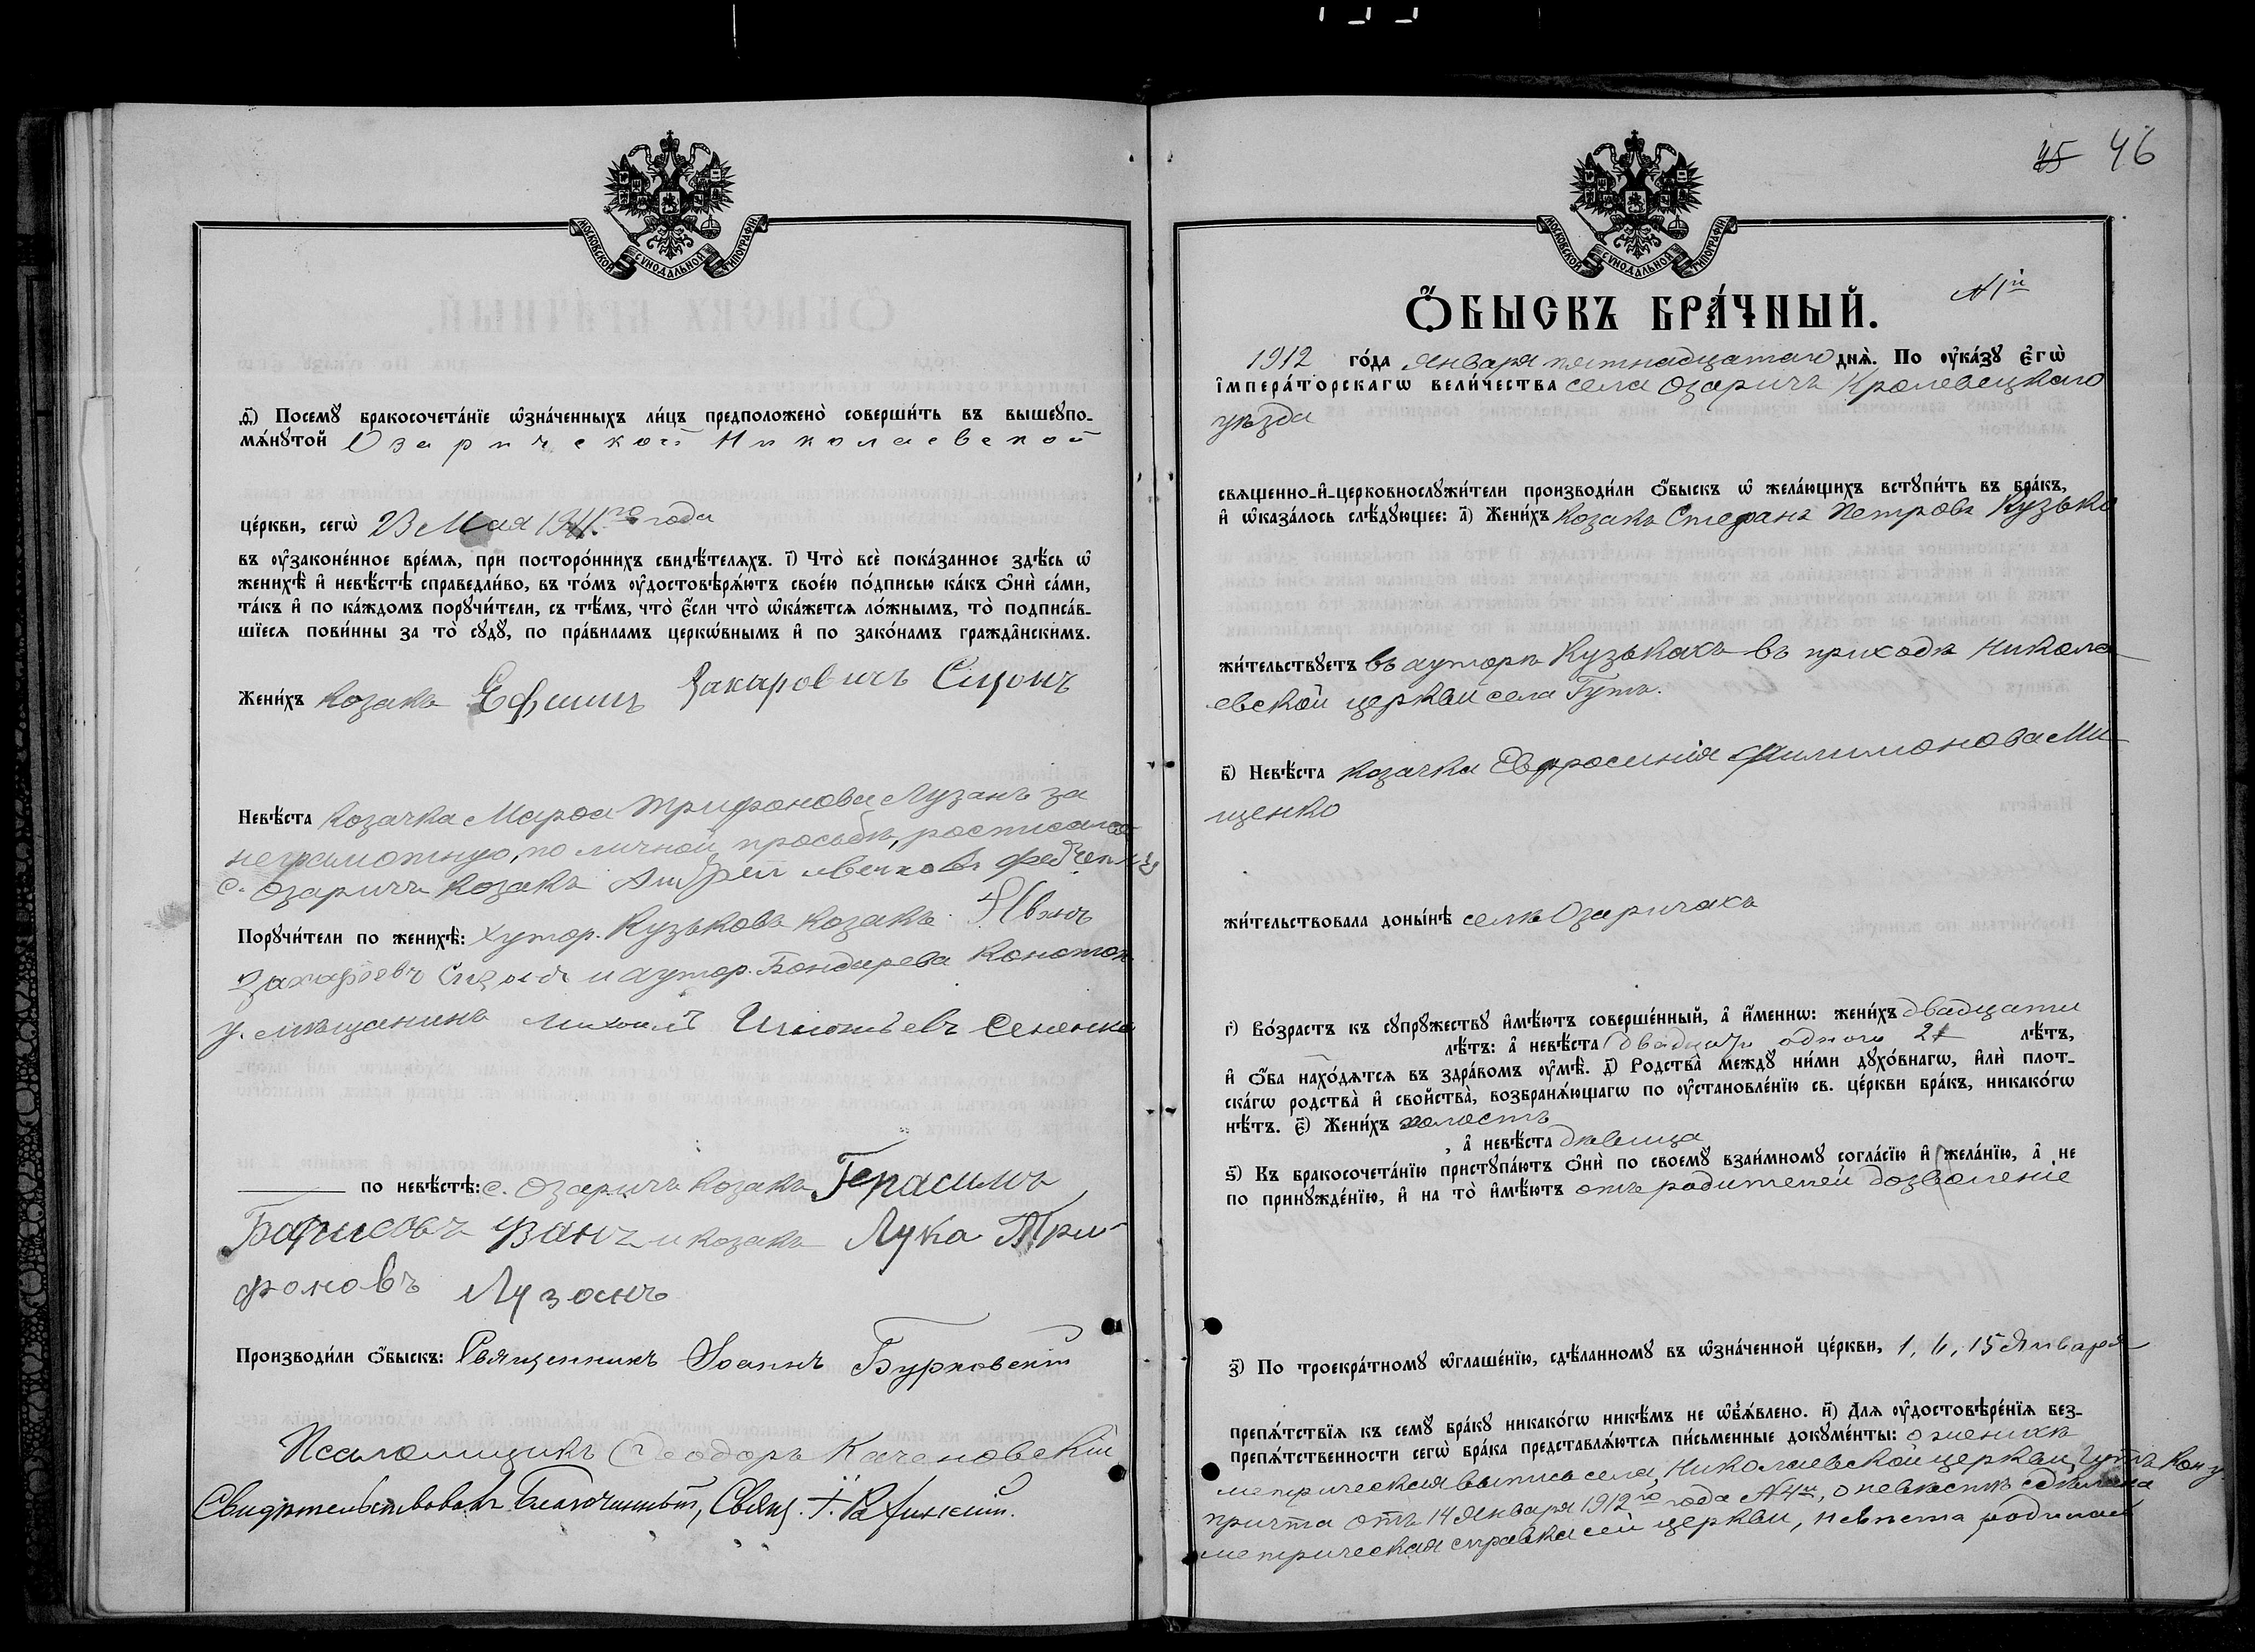 МОСКОВСКОЙ СѴНОДАЛЬНОЙ ТИПОГРАФІИ.
д҃і) Посемꙋ бракосочета́нїе ѡ҆зна́ченныхъ ли́цъ предположено̀ соверши́ть въ вышеупо-
мѧ́нꙋтой Озаричской Николаевской
це́ркви, сегѡ̀ 23 Мая 1911го года
въ ᲂу҆законе́нное вре́мѧ, при посторо́ннихъ свидѣ́телѧхъ. і҃) Что̀ всѐ пока́занное здѣ́сь ѡ҆
женихѣ̀ и҆ невѣ́стѣ справедли́во, въ то́мъ ᲂу҆достовѣрѧ́ютъ свое́ю по́дписью ка́къ ѻ҆нѝ са́ми,
та́къ и҆ по ка́ждомъ порꙋчи́тели, съ тѣ́мъ, что̀ є҆́сли что̀ ѡ҆ка́жетсѧ ло́жнымъ, то̀ подписа́в-
шїесѧ пови́нны за то̀ сꙋдꙋ̀, по пра́виламъ церкѡ́внымъ и҆ по зако́намъ гражда̑нскимъ.
Жени́хъ козакъ Ефимъ Захаровичъ Сизонъ
Невѣ́ста козачка Марѳа Трифонова Лузанъ за
неграмотную, по личной просьбѣ, росписался
с. Озаричъ козакъ Андрей
Порꙋчи́тели по женихѣ̀: хутор. Кузьковъ козакъ Иванъ
Захарьевъ и хутор. Бондарева Конотоп.
у. мѣщанинъ Михаилъ Игнатьевъ Сененко
по невѣ́стѣ: с. Озаричъ козакъ Герасимъ
Борисовъ и козакъ Лука Три-
фоновъ Лузанъ
Производи́ли ѻ҆́быскъ: Священникъ Іоаннъ Бурковскій
Псаломщикъ Ѳеодоръ Качановскій
Свидѣтельствовалъ Благочинный, Свящ.
45 46
МОСКОВСКОЙ СѴНОДАЛЬНОЙ ТИПОГРАФІИ.
Ѻ҆́БЫСКЪ БРА́ЧНЫЙ. №1й
1912 го́да Января пятнадцатаго днѧ̀. По ᲂу҆ка́зꙋ є҆гѡ̀
і҆мпера́торскагѡ вели́чества села Озаричъ Кролевецкаго
уѣзда
свѧщенно-и҆-церковнослꙋжи́тели производи́ли ѻ҆́быскъ ѡ҆ жела́ющихъ встꙋпи́ть въ бра́къ,
и҆ ѡ҆каза́лось слѣ́дꙋющее: а҃) Жени́хъ козакъ Стефанъ Петровъ Кузько
жи́тельствꙋетъ въ хуторѣ Кузькахъ въ приходѣ Никола-
евской церкви села Гутъ.
в҃) Невѣ́ста козачка Евфросинія Филимонова Ми-
щенко
жи́тельствовала доны́нѣ селѣ Озаричахъ
г҃) Во́зрастъ къ сꙋпрꙋжествꙋ и҆мѣ́ютъ соверше́нный, а҆ и҆́меннѡ: жени́хъ двадцати
лѣ́тъ: а҆ невѣ́ста двадцати одного 21 лѣ́тъ,
и҆ ѻ҆́ба нахо́дѧтсѧ въ здра́вомъ ᲂу҆мѣ̀. д҃) Родства̀ междꙋ ни́ми дꙋхо́внагѡ, и҆лѝ плот-
ска́гѡ родства̀ и҆ свойства̀, возбранѧ́ющагѡ по ᲂу҆становле́нїю св. це́ркви бра́къ, никако́гѡ
нѣ́тъ. є҃) Жени́хъ холостъ
, а҆ невѣ́ста дѣвица
ѕ҃) Къ бракосочета́нїю пристꙋпа́ютъ ѻ҆нѝ по своемꙋ̀ взаи́мномꙋ согла́сїю и҆ жела́нїю, а҆ не
по принꙋжде́нїю, и҆ на то̀ и҆мѣ́ютъ отъ родителей дозволеніе
з҃) По троекра́тномꙋ ѡ҆глаше́нїю, сдѣ́ланномꙋ въ ѡ҆зна́ченной це́ркви, 1, 6, 15 Января
препѧ́тствїѧ къ семꙋ̀ бра́кꙋ никако́гѡ никѣ́мъ не ѡ҆б̾ѧ́влено. и҃) Длѧ ᲂу҆достовѣре́нїѧ без-
препѧ́тственности сегѡ̀ бра́ка представлѧ́ютсѧ пи́сьменные докꙋме́нты: о женихѣ
метрическая выпись села, Николаевской церкви, Гутъ Кон. у.
причта отъ 14 Января 1912го года №4й, о невѣстѣ сдѣлана
метрическая справка сей церкви, невѣста родилась